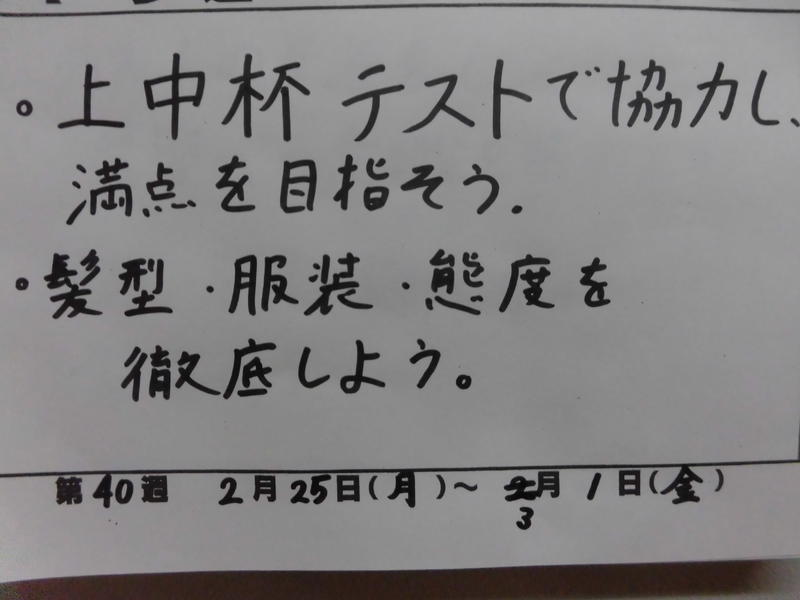 。上中杯 テストで協力し、
満点を目指そう.
。髪型・服装・態度を
徹底しよう。
第40週 2月25日(月)～3月1日(金)